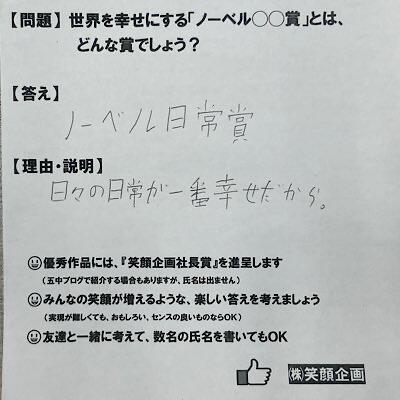 【問題】 世界を幸せにする「ノーベル〇〇賞」とは、
どんな賞でしょう？
【答え】
ノーベル日常賞
【理由・説明】
日々の日常が一番幸せだから。
優秀作品には、『笑顔企画社長賞』を進呈します
（五中ブログで紹介する場合もありますが、氏名は出ません）
みんなの笑顔が増えるような、楽しい答えを考えましょう
（実現が難しくても、おもしろい、センスの良いものならOK）
友達と一緒に考えて、数名の氏名を書いてもOK
㈱笑顔企画